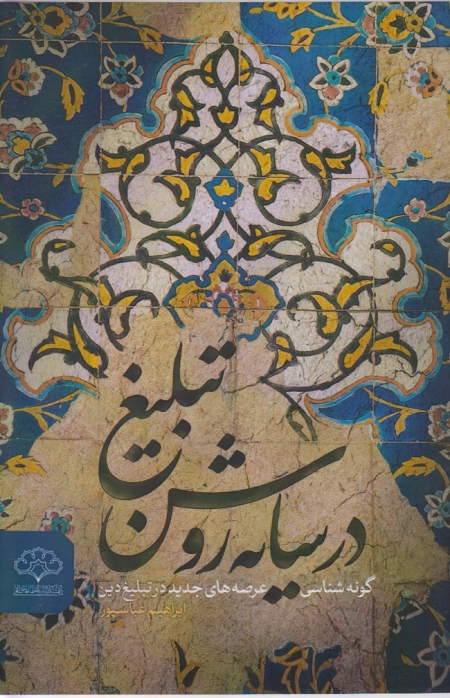 تبلیغ
در سایه روشن
گونه شناسی عرصه های جدید در تبلیغ دین
ابراهیم عباسپور